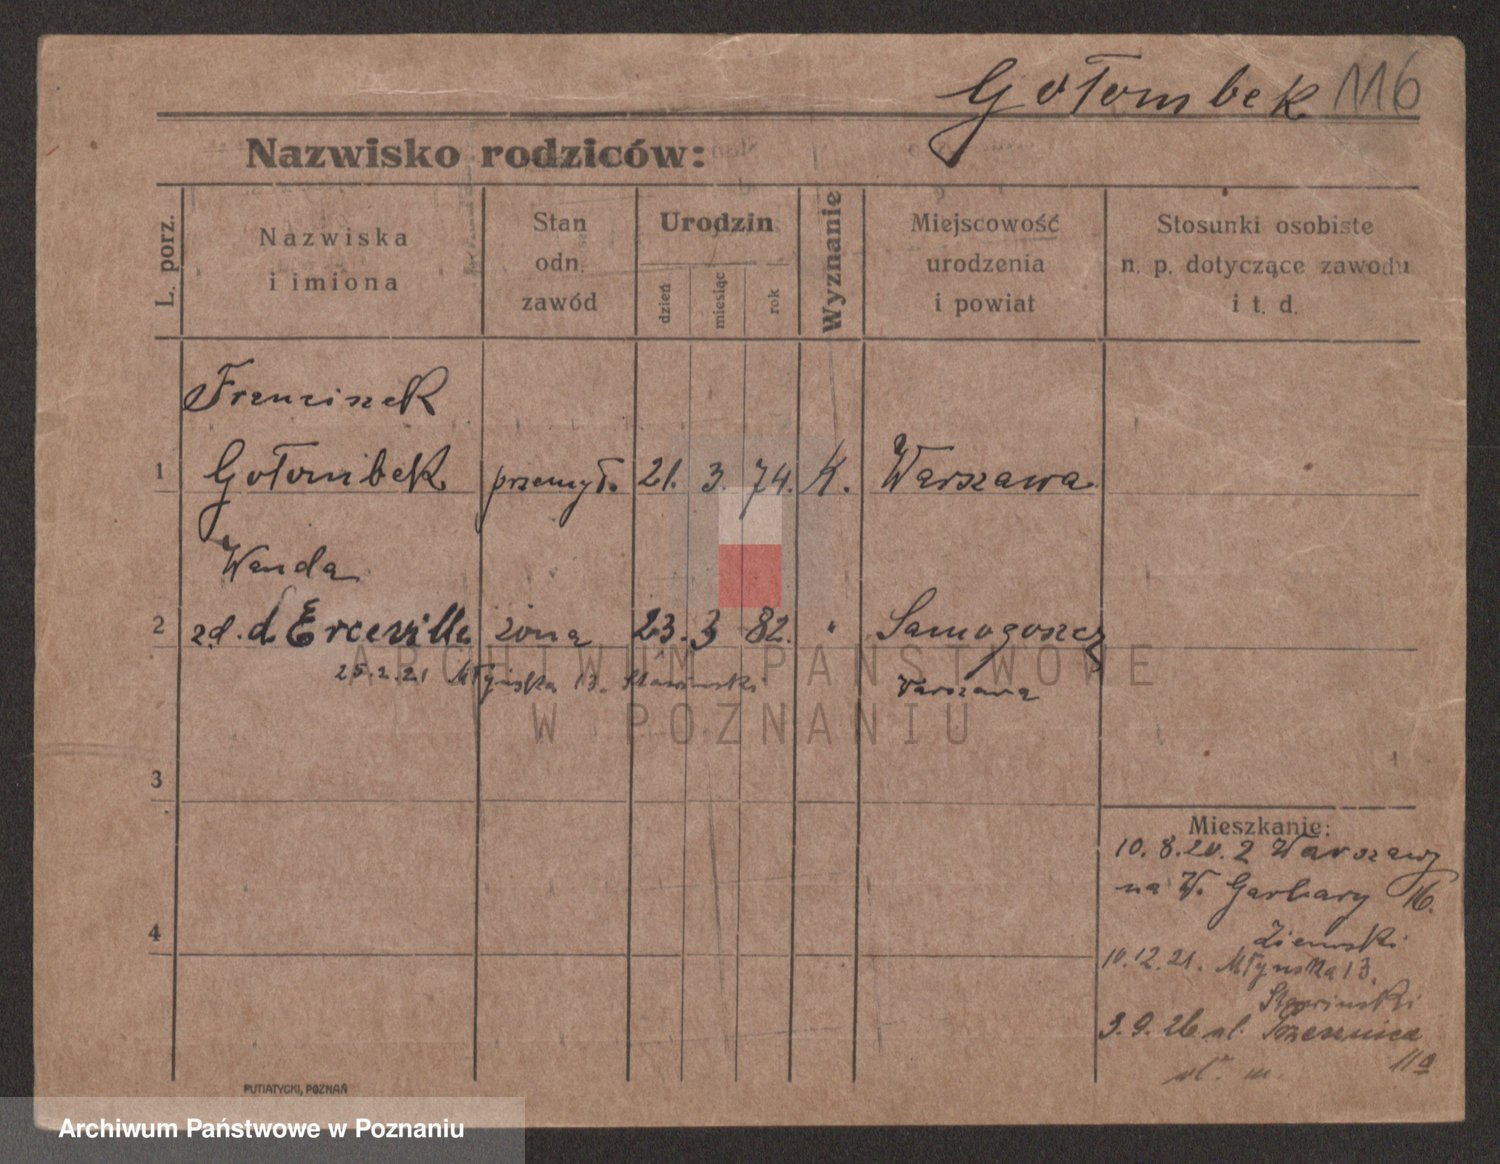 Gołombek 116
Nazwisko rodziców:
L. porz.
Nazwiska
i imiona
Stan
odn.
zawód
Urodzin
dzień
miesiąc
rok
Wyznanie
Miejscowość
urodzenia
i powiat
Stosunki osobiste
n. p. dotyczące zawodu
i t. d.
Franciszek
1 Gołombek przemysł. 21. 3. 74. K. Warszawa
Wanda
2 zd. d'Erceville żona 23. 3 82. " Samogoszcz
25.2.21 Młyńska 13. Warszawa
ARCHIWUM PAŃSTWOWE
W POZNANIU
3
4
Mieszkanie:
10. 8. 20. z Warszawy
na W. Garbary 16.
10.12.21. Młyńska 13.
3. 9. 26 ul.
11a
PUTIATYCKI, POZNAŃ
Archiwum Państwowe w Poznaniu